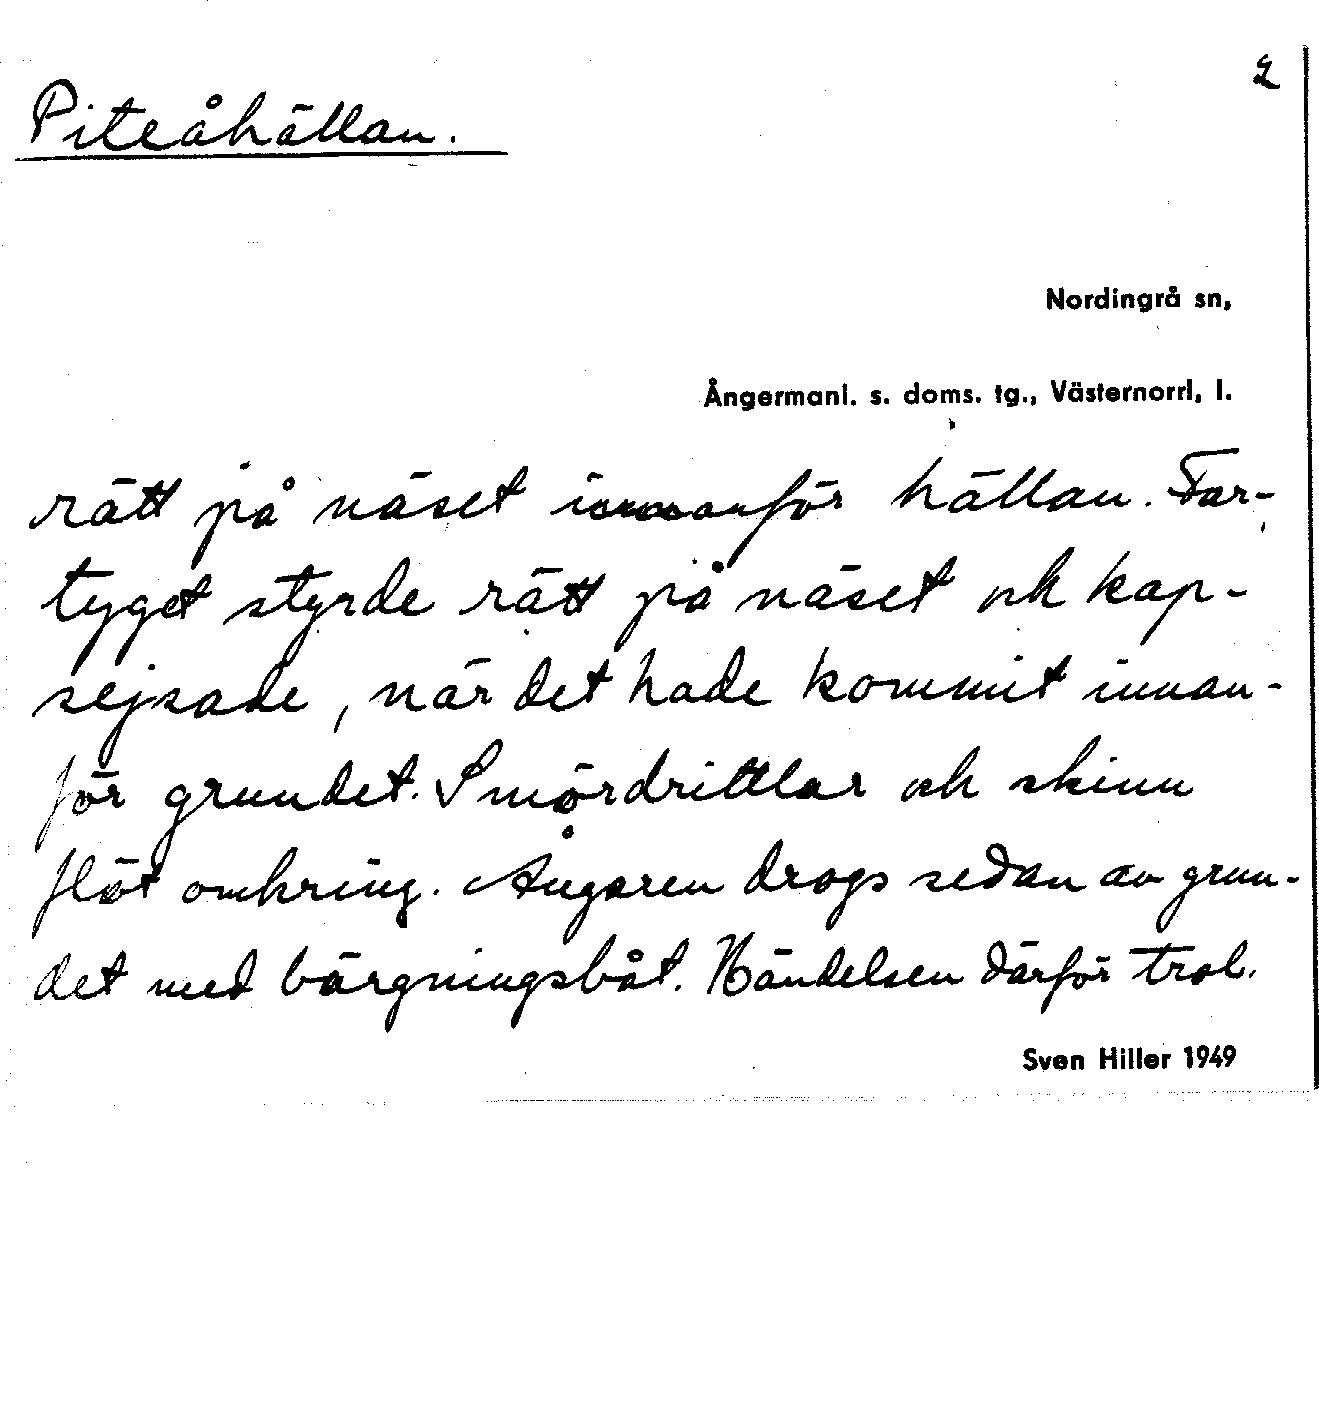 2
Piteåhällan.
Nordingrå sn,
Ångermanl. s. doms. tg., Västernorrl. l.
rätt på näset innanför hällan. Far-
tyget styrde rätt på näset och kap-
sejsade, när det hade kommit innan-
för grundet. Smördrittlar och skinn
flöt omkring. Ångaren drogs sedan av grun-
det med bärgningsbåt. Händelsen därför trol.
Sven Hiller 1949